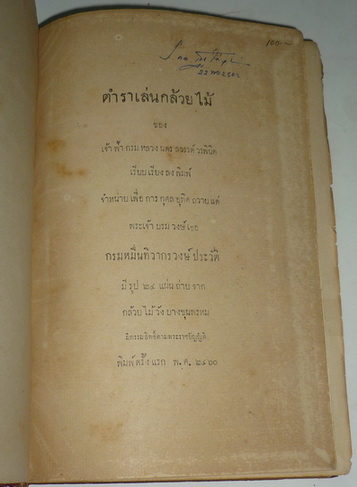 ๑๐๐-
ตำราเล่นกล้วยไม้
ของ
เจ้าฟ้ากรมหลวงนครสวรรค์วรพินิต
เรียบเรียงลงพิมพ์
จำหน่ายเพื่อการกุศลอุทิศถวายแด่
พระเจ้าบรมวงษ์เธอ
กรมหมื่นทิวากรวงษ์ประวัติ
มีรูป ๒๔ แผ่นถ่ายจาก
กล้วยไม้วังบางขุนพรหม
มีกรรมสิทธิ์ตามพระราชบัญญัติ
พิมพ์ครั้งแรก พ.ศ. ๒๔๖๐